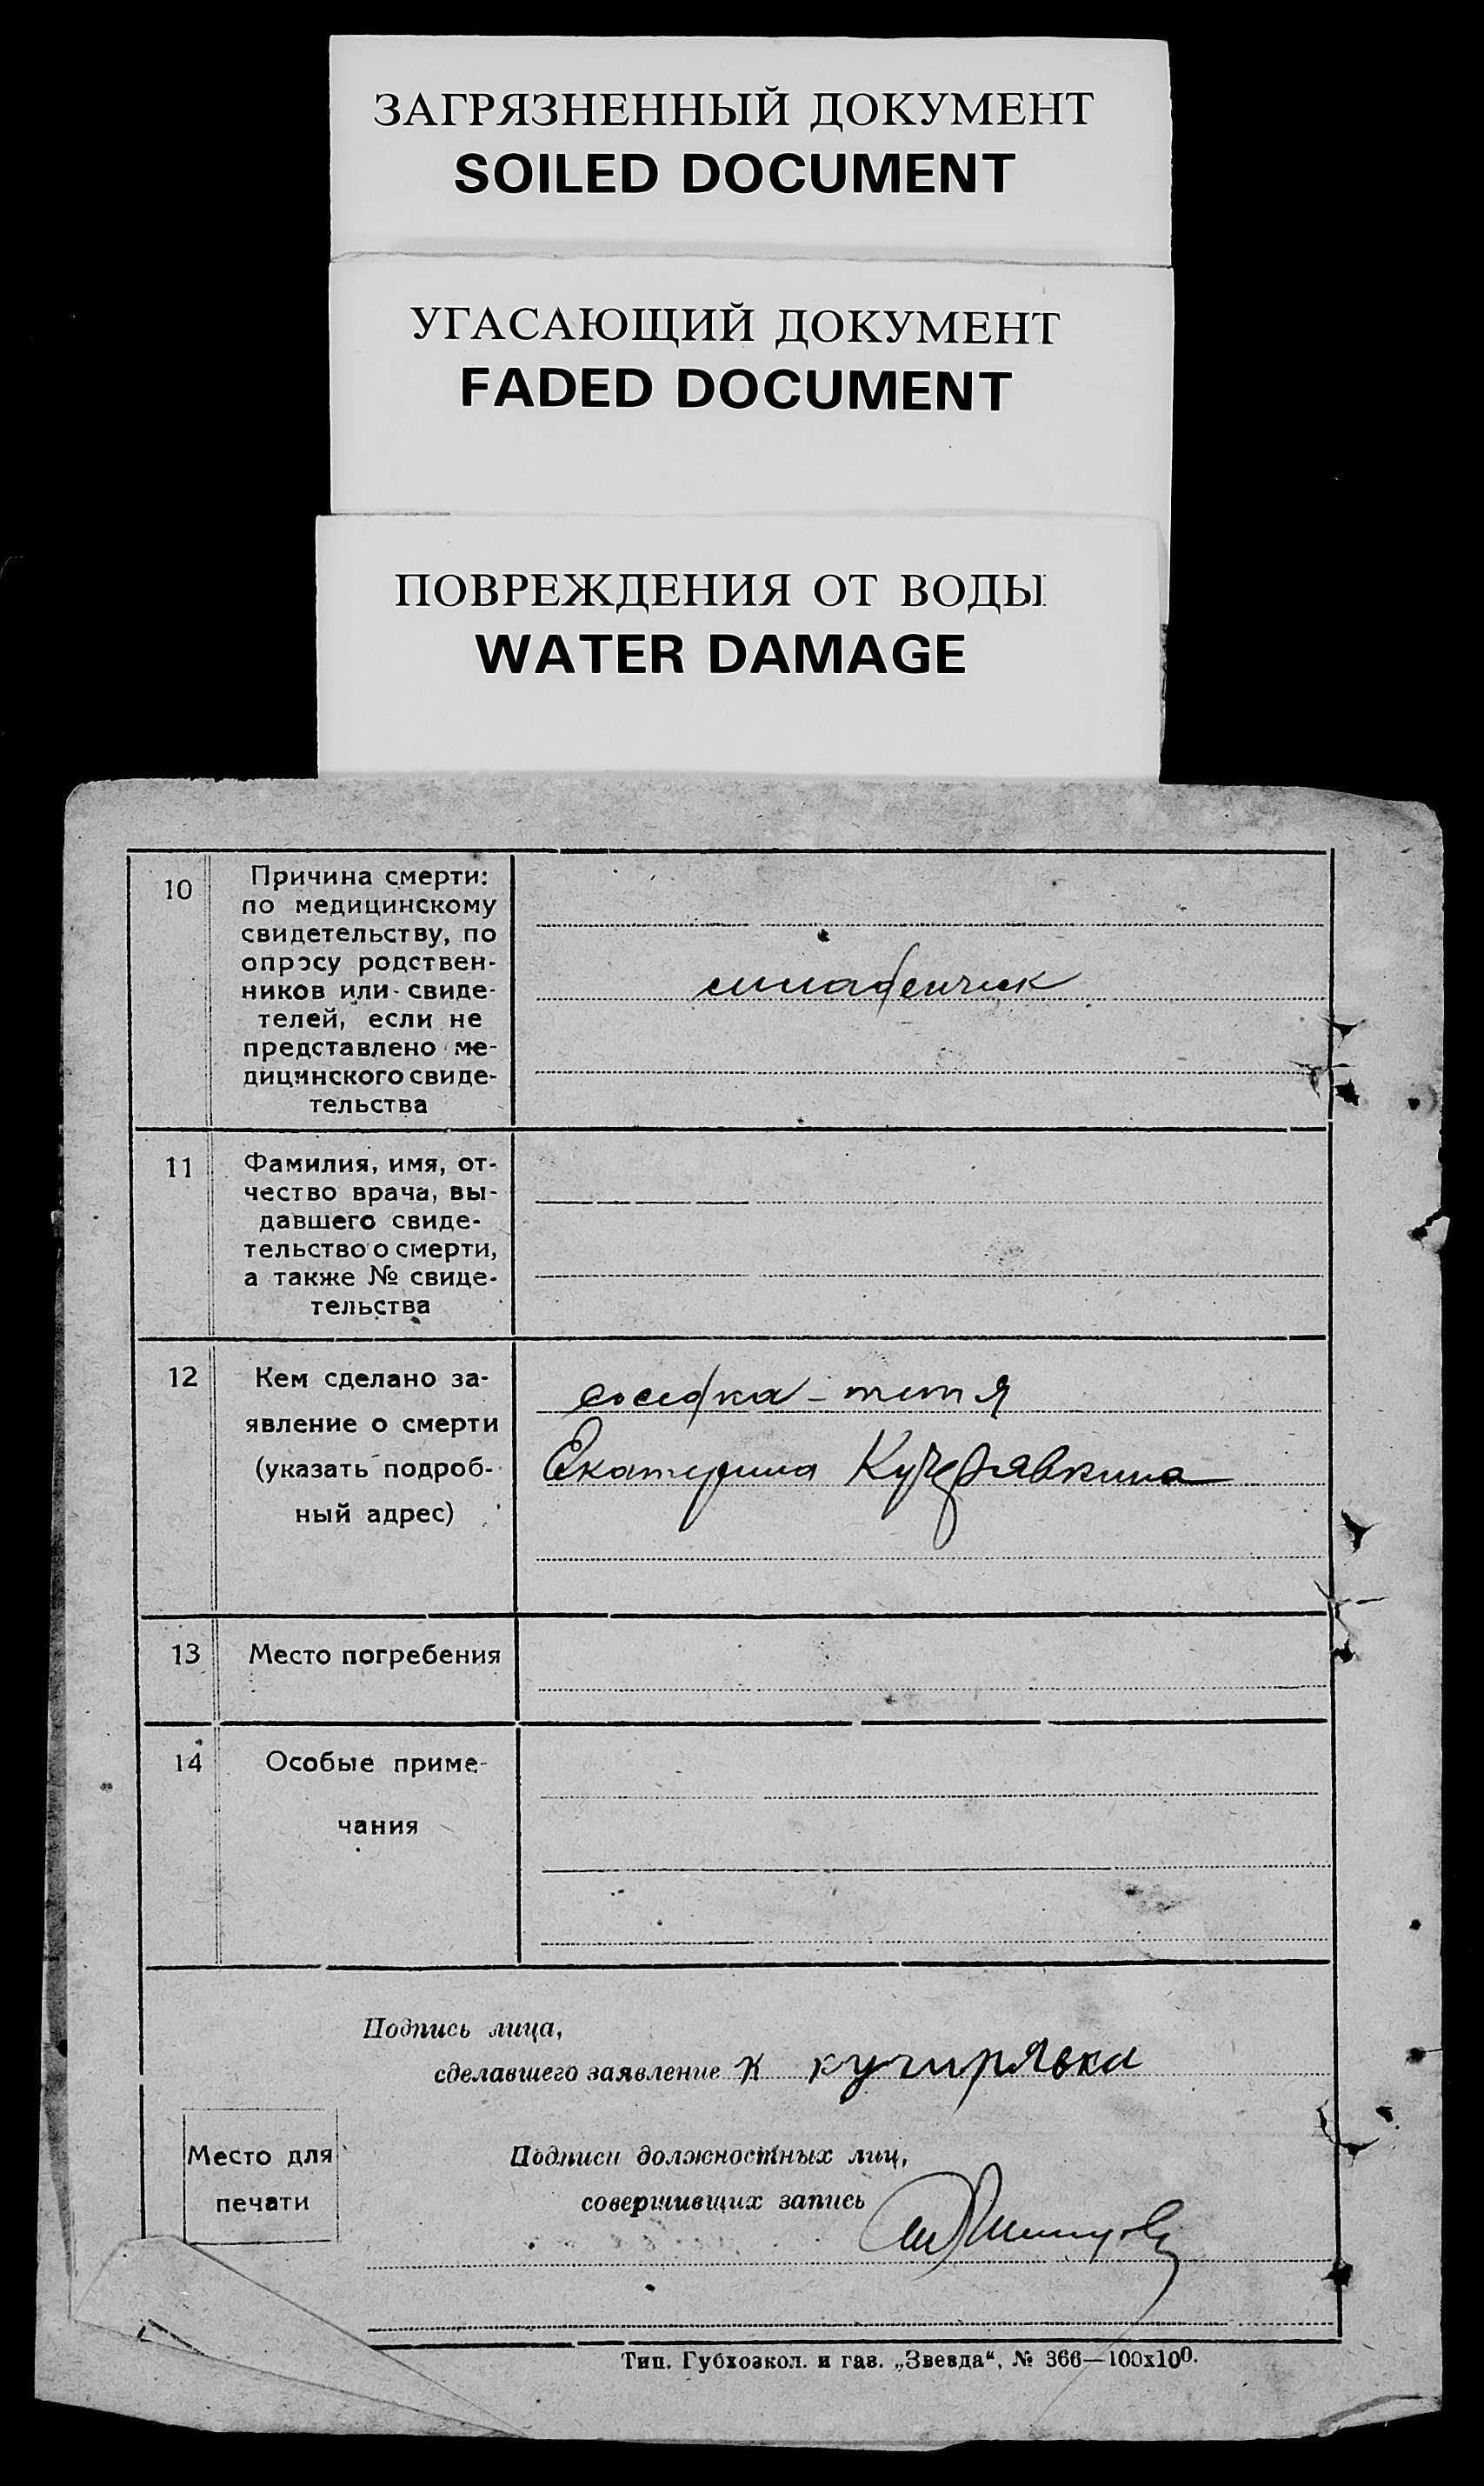 ЗАГРЯЗНЕННЫЙ ДОКУМЕНТ
SOILED DOCUMENT
УГАСАЮЩИЙ ДОКУМЕНТ
FADED DOCUMENT
ПОВРЕЖДЕНИЯ ОТ ВОДЫ
WATER DAMAGE
10
Причина смерти:
по медицинскому
свидетельству, по
опросу родствен-
ников или свиде-
телей, если не
представлено ме-
дицинского свиде-
тельства
младенчик
11
Фамилия, имя, от-
чество врача, вы-
давшего свиде-
тельство о смерти,
а также № свиде-
тельства
12
Кем сделано за-
явление о смерти
(указать подроб-
ный адрес)
соседка - тетя
Екатерина Кучерявкина
13
Место погребения
14
Особые приме-
чания
Подпись лица,
сделавшего заявление К кучирявка
Место для
печати
Подписи должностных лиц,
совершивших запись
Тип. Губхозкол. и газ. „Звезда“, № 366—100х100.